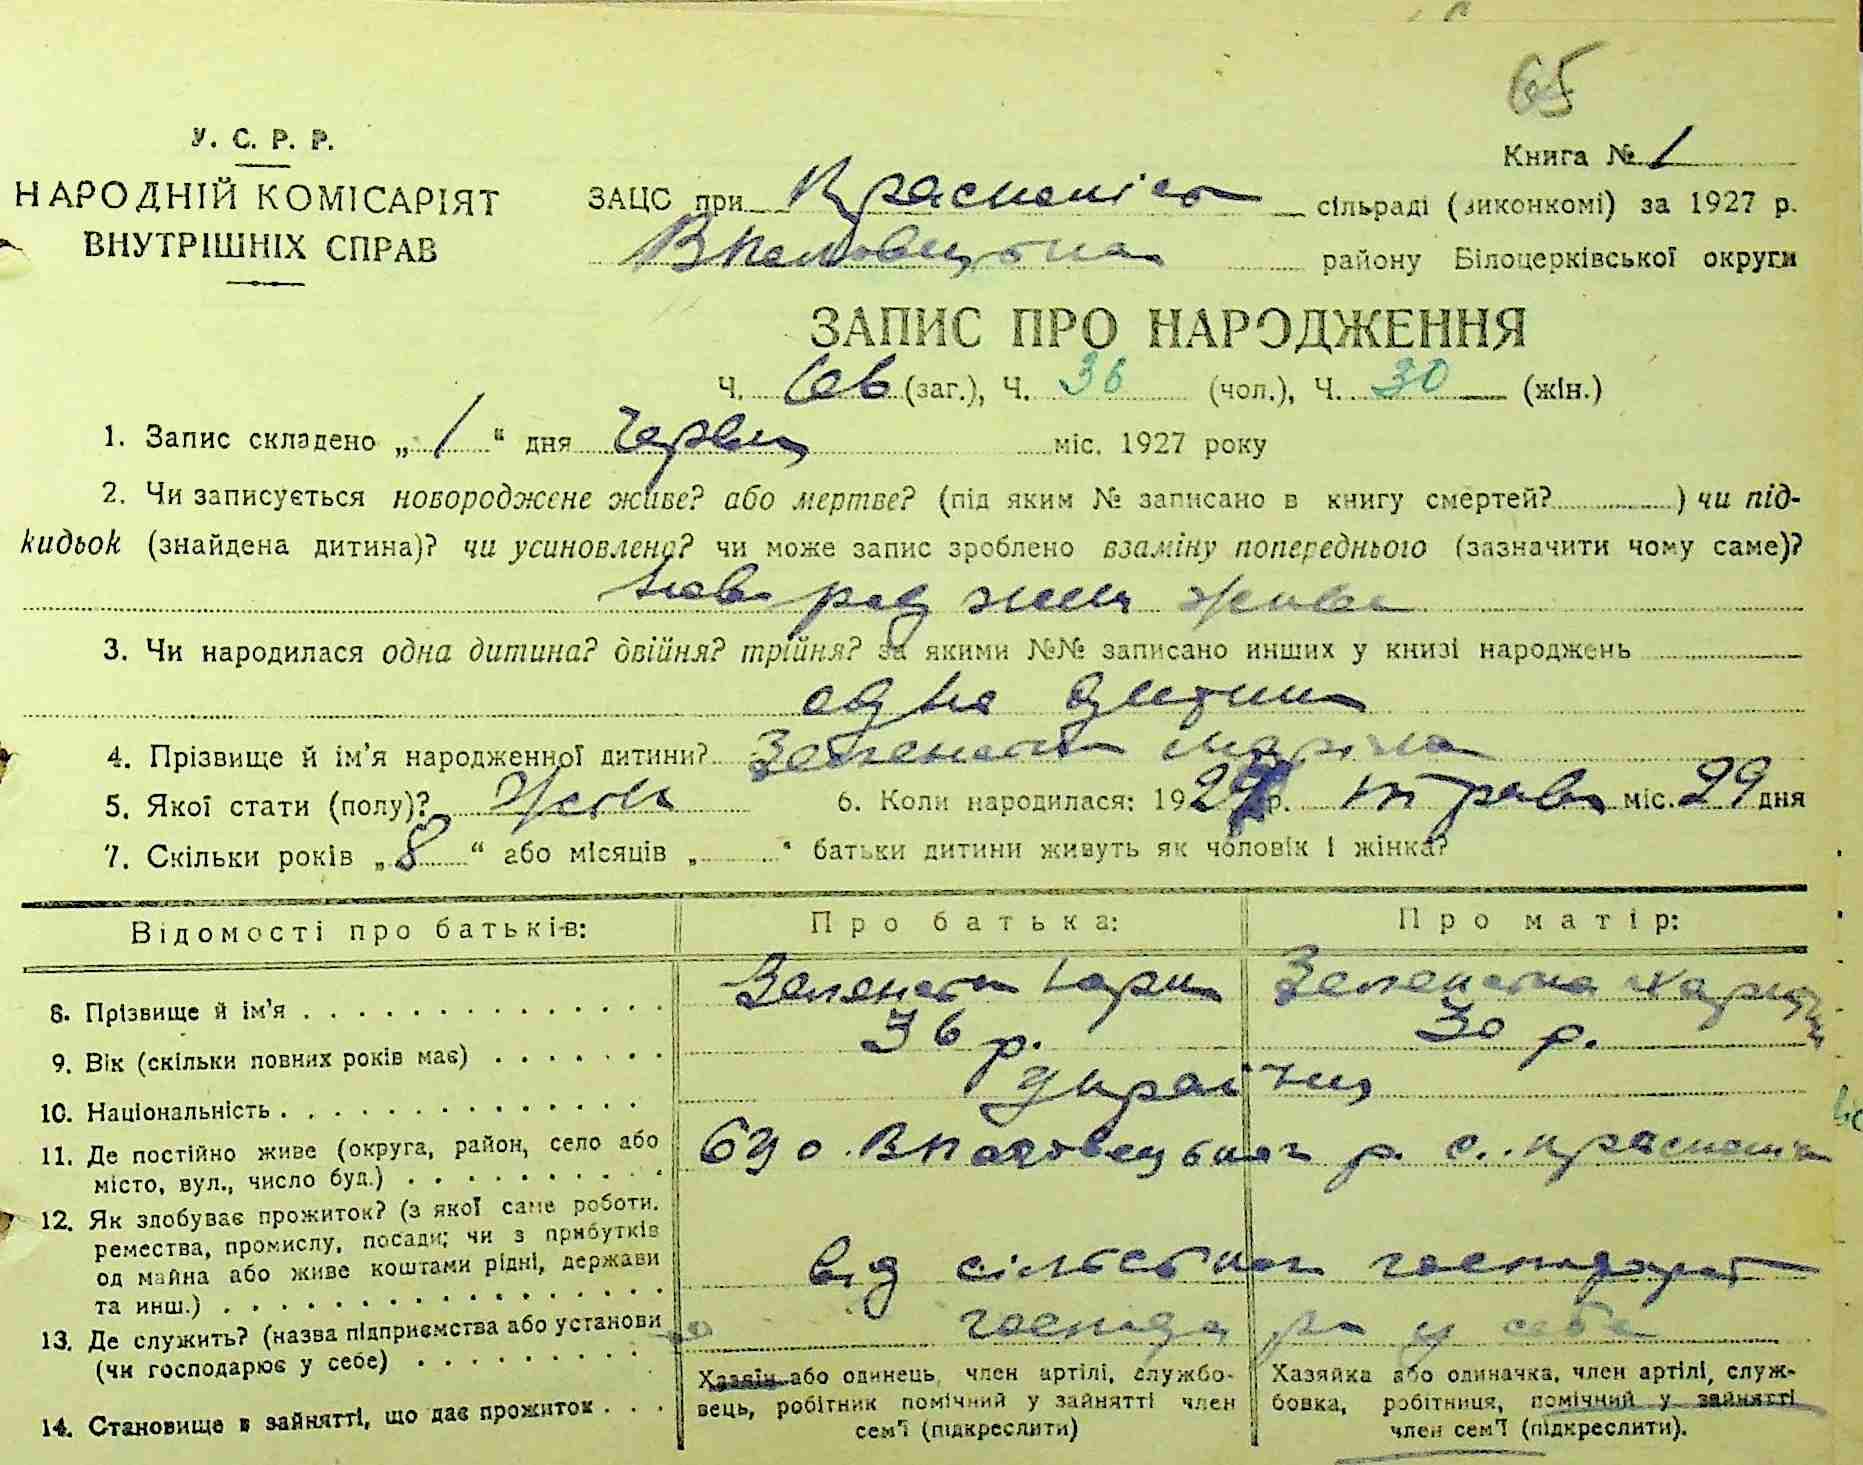 65
У. С. Р. Р.
НАРОДНІЙ КОМІСАРІЯТ
ВНУТРІШНІХ СПРАВ
Книга № 1
ЗАЦС при сільраді (виконкомі) за 1927 р.
району Білоцерківської округи
ЗАПИС ПРО НАРОДЖЕННЯ
Ч. 66 (заг.), Ч. 36 (чол.), Ч. 30 (жін.)
1. Запис складено „ 1 “ дня червня міс. 1927 року
2. Чи записується новороджене живе? або мертве? (під яким № записано в книгу смертей? ) чи під-
кидьок (знайдена дитина)? чи усиновлена? чи може запис зроблено взаміну попереднього (зазначити чому саме)?
живе
3. Чи народилася одна дитина? двійня? трійня? за якими №№ записано инших у книзі народжень
одна дитина
4. Прізвище й ім'я народженної дитини?
5. Якої стати (полу)? 6. Коли народилася: 1927 р. травня міс. 29 дня
7. Скільки років „ 8 “ або місяців „ “ батьки дитини живуть як чоловік і жінка?
Відомості про батьків: Про батька: Про матір:
8. Прізвище й ім'я
9. Вік (скільки повних років має) 36 р. 30 р.
10. Національність
11. Де постійно живе (округа, район, село або
місто, вул., число буд.) р. с.
12. Як здобуває прожиток? (з якої саме роботи,
ремества, промислу, посади; чи з прибутків
од майна або живе коштами рідні, держави
та инш.) від
13. Де служить? (назва підприємства або установи
(чи господарює у себе) у себе
14. Становище в зайнятті, що дає прожиток
Хазяїн або одинець, член артілі, службо-
вець, робітник помічний у зайнятті член
сем'ї (підкреслити)
Хазяйка або одиначка, член артілі, служ-
бовка, робітниця, помічний у зайнятті
член сем'ї (підкреслити).